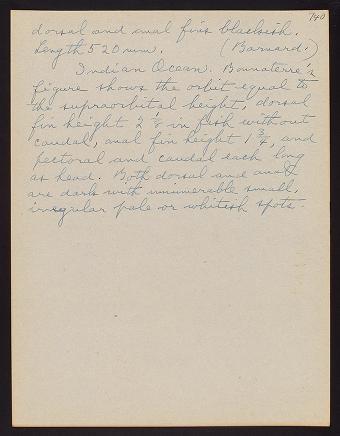 740
dorsal and anal fins blackish.
Length 520 mm. (Barnard.)
Indian Ocean. Bonnaterre's
figure shows the orbit equal to
the supraorbital height, dorsal
fin height 2 in fish without
caudal, anal fin height 1 3/4, and
pectoral and caudal each long
as head. Both dorsal and anal
are dark with innumerable small,
irregular pale or whitish spots.